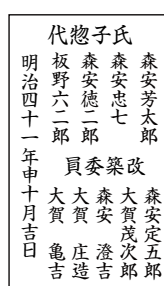 氏子惣代
森安芳太郎
森安忠七
森安徳二郎
板野六二郎
改築委員
森安定五郎
大賀茂次郎
森安澄吉
大賀庄造
大賀亀吉
明治四十一年申十月吉日